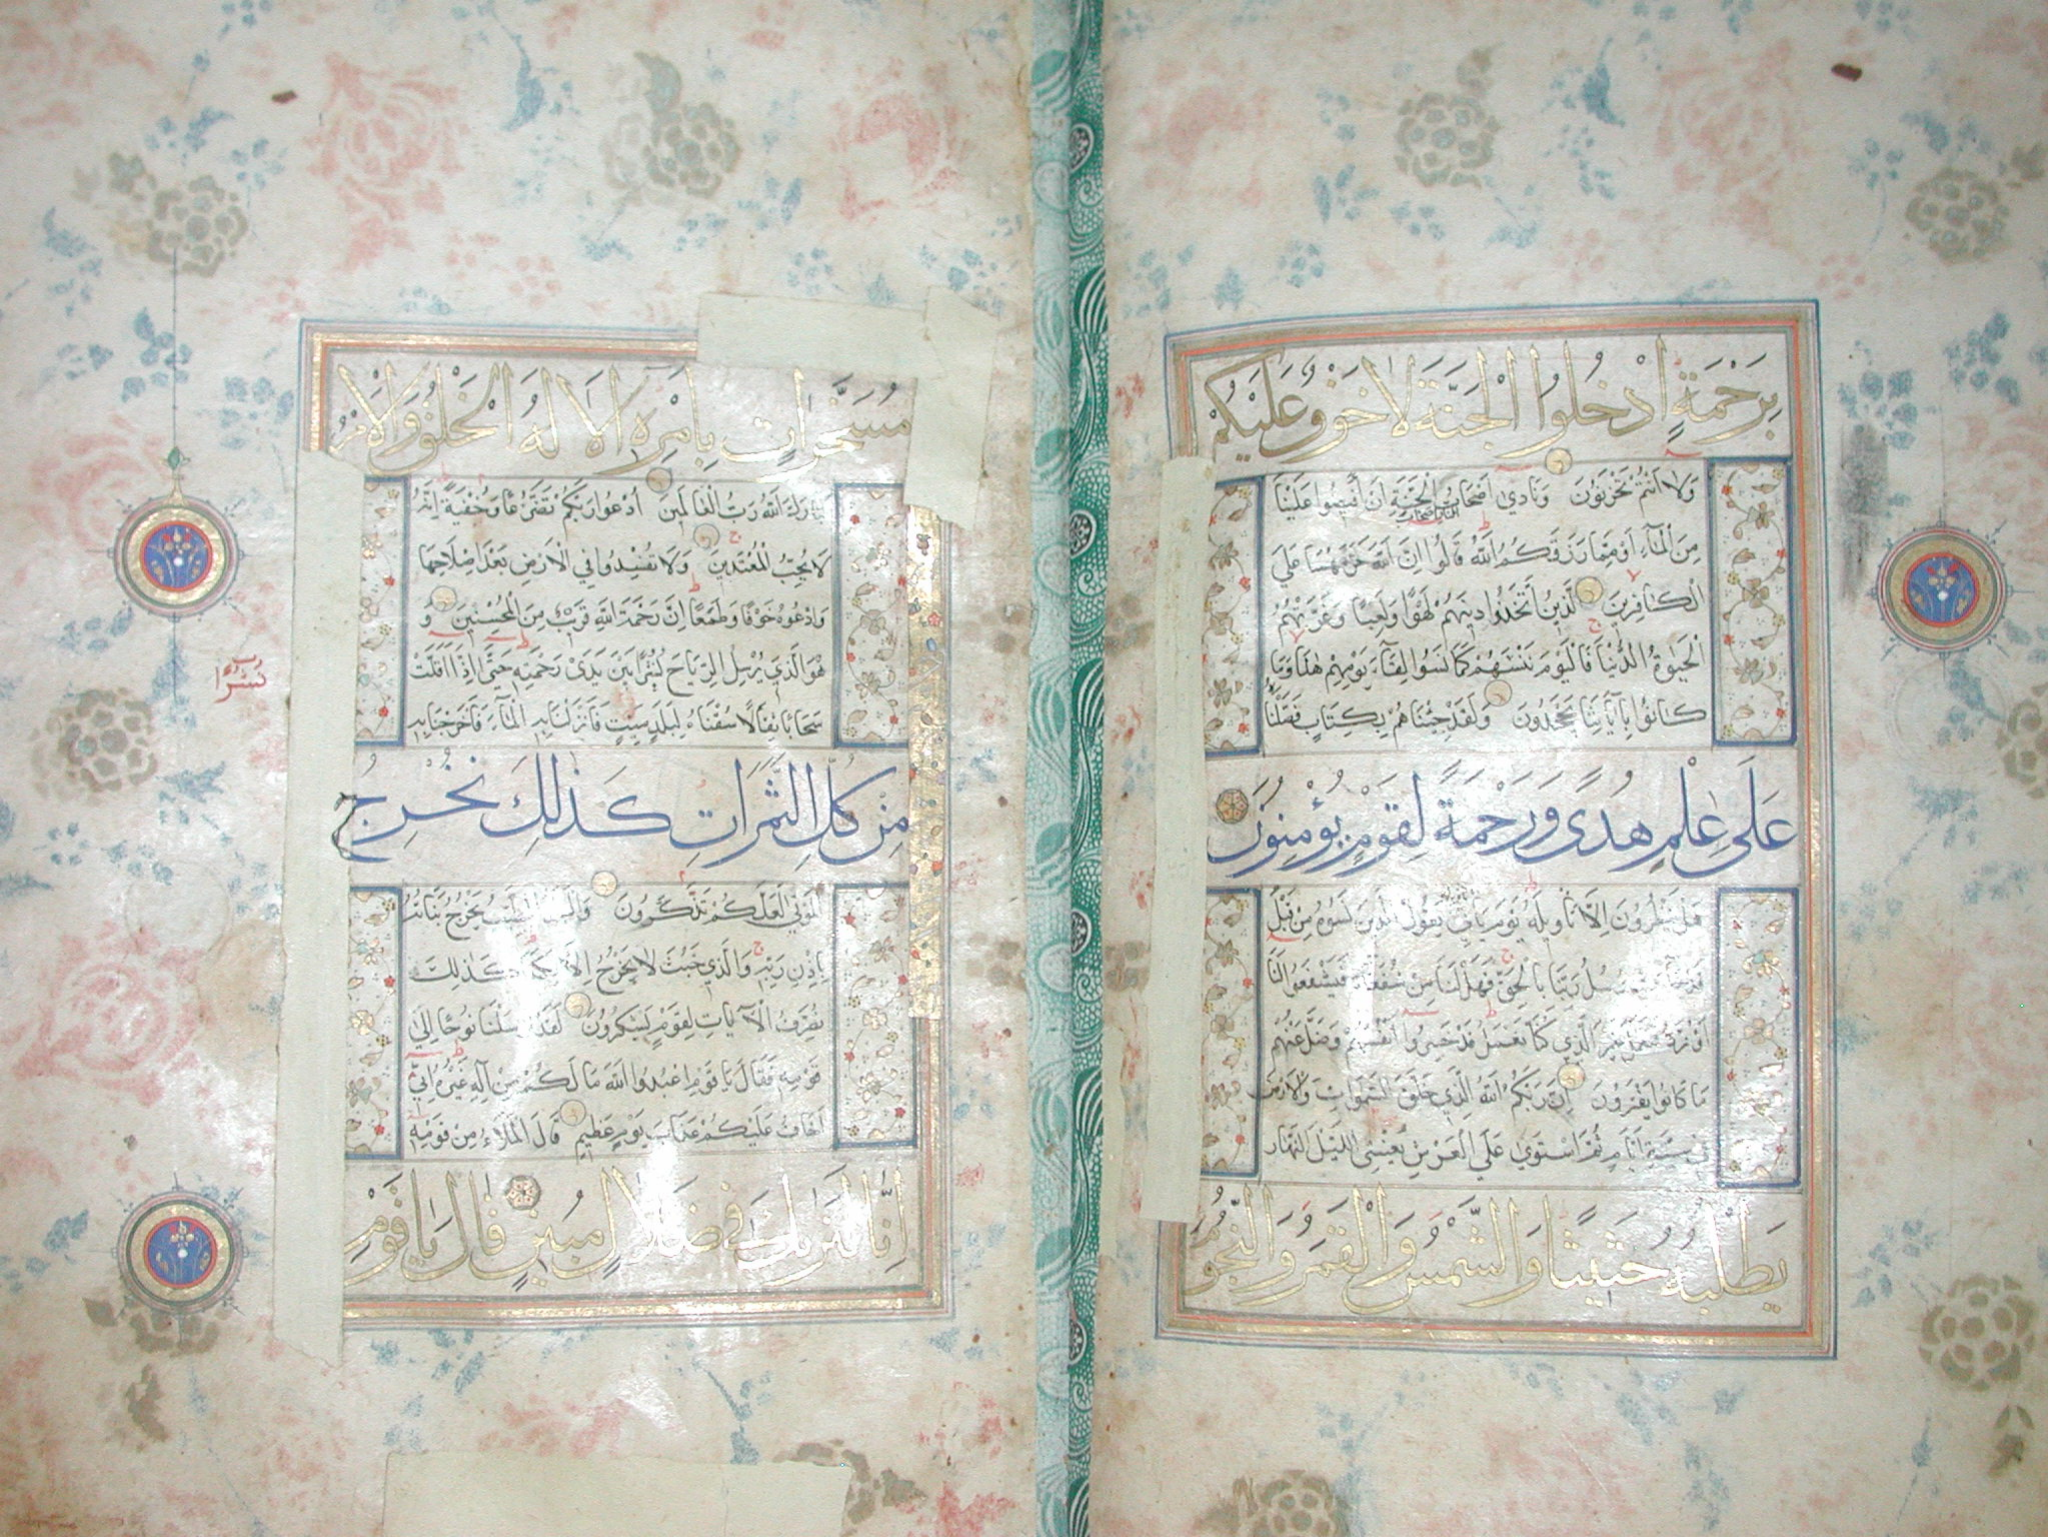 بِرَحْمَةٍ اُدْخُلُوا الْجَنَّةَ لَا خَوْفٌ عَلَيْكُمْ
وَلَا اَنْتُمْ تَحْزَنُونَ وَنَادٰي اَصْحَابُ الْجَنَّةِ اَنْ أَفِيضُوا عَلَيْنَا
النار اصحاب
مِنَ الْمَآءِ اَوْ مِمَّا رَزَقَكُمُ اللّٰهُ قَالُوا اِنَّ اللّٰهَ حَرَّمَهُمَا عَلَي
الْكَافِرِينَ الَّذِينَ اتَّخَذُوا دِينَهُمْ لَهْوًا وَلَعِبًا وَغَرَّتْهُمُ
الْحَيٰوةُ الدُّنْيَا فَالْيَوْمَ نَنْسٰيهُمْ كَمَا نَسُوا لِقَآءَ يَوْمِهِمْ هٰذَا وَمَا
كَانُوا بِآيَاتِنَا يَجْحَدُونَ وَلَقَدْ جِئْنَاهُمْ بِكِتَابٍ فَصَّلْنَاهُ
عَلٰى عِلْمٍ هُدًى وَرَحْمَةً لِقَوْمٍ يُؤْمِنُونَ
هَلْ يَنْظُرُونَ اِلَّا تَاْوِيلَهُ يَوْمَ يَاْتِي يَقُولُ الَّذِينَ نَسُوهُ مِنْ قَبْلُ
رُسُلُ رَبِّنَا بِالْحَقِّ فَهَلْ لَنَا مِنْ شُفَعَاءَ فَيَشْفَعُوا لَنَا
اَوْ نُرَدُّ فَنَعْمَلَ غَيْرَ الَّذِي كُنَّا نَعْمَلُ قَدْ خَسِرُوا اَنْفُسَهُمْ وَضَلَّ عَنْهُمْ
مَا كَانُوا يَفْتَرُونَ اِنَّ رَبَّكُمُ اللّٰهُ الَّذِي خَلَقَ السَّمٰوَاتِ وَالْاَرْضَ
فِي سِتَّةِ اَيَّامٍ ثُمَّ اسْتَوٰي عَلَي الْعَرْشِ يُغْشِي اللَّيْلَ النَّهَارَ
يَطْلُبُهُ حَثِيثًا وَالشَّمْسَ وَالْقَمَرَ وَالنُّجُومَ
مُسَخَّرَاتٍ بِاَمْرِهِ اَلَا لَهُ الْخَلْقُ وَالْاَمْرُ
تَبَارَكَ اللّٰهُ رَبُّ الْعَالَمِينَ اُدْعُوا رَبَّكُمْ تَضَرُّعًا وَخُفْيَةً اِنَّهُ
لَا يُحِبُّ الْمُعْتَدِينَ وَلَا تُفْسِدُوا فِي الْاَرْضِ بَعْدَ اِصْلَاحِهَا
وَادْعُوهُ خَوْفًا وَطَمَعًا اِنَّ رَحْمَةَ اللّٰهِ قَرِيبٌ مِنَ الْمُحْسِنِينَ وَ
هُوَ الَّذِي يُرْسِلُ الرِّيَاحَ بُشْرًا بَيْنَ يَدَيْ رَحْمَتِهِ حَتَّى اِذَا اَقَلَّتْ
نُشُرًا
سَحَابًا ثِقَالًا سُقْنَاهُ لِبَلَدٍ مَيِّتٍ فَاَنْزَلْنَا بِهِ الْمَآءَ فَاَخْرَجْنَا بِهِ
مِنْ كُلِّ الثَّمَرَاتِ كَذٰلِكَ نُخْرِجُ
الْمَوْتٰي لَعَلَّكُمْ تَذَكَّرُونَ وَالْبَلَدُ الطَّيِّبُ يَخْرُجُ نَبَاتُهُ
بِاِذْنِ رَبِّهِ وَالَّذِي خَبُثَ لَا يَخْرُجُ اِلَّا نَكِدًا كَذٰلِكَ
نُصَرِّفُ الْآيَاتِ لِقَوْمٍ يَشْكُرُونَ لَقَدْ اَرْسَلْنَا نُوحًا اِلٰي
قَوْمِهِ فَقَالَ يَا قَوْمِ اعْبُدُوا اللّٰهَ مَا لَكُمْ مِنْ اِلٰهٍ غَيْرُهُ اِنِّي
اَخَافُ عَلَيْكُمْ عَذَابَ يَوْمٍ عَظِيمٍ قَالَ الْمَلَاُ مِنْ قَوْمِهِ
اِنَّا لَنَرٰيكَ فِي ضَلَالٍ مُبِينٍ قَالَ يَا قَوْمِ